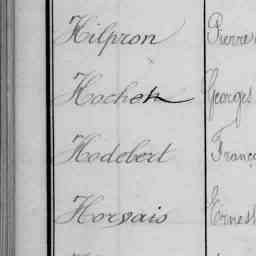 Hilpron Pierre
Hochet Georges
Hodebert Franç
Horvais Ernest